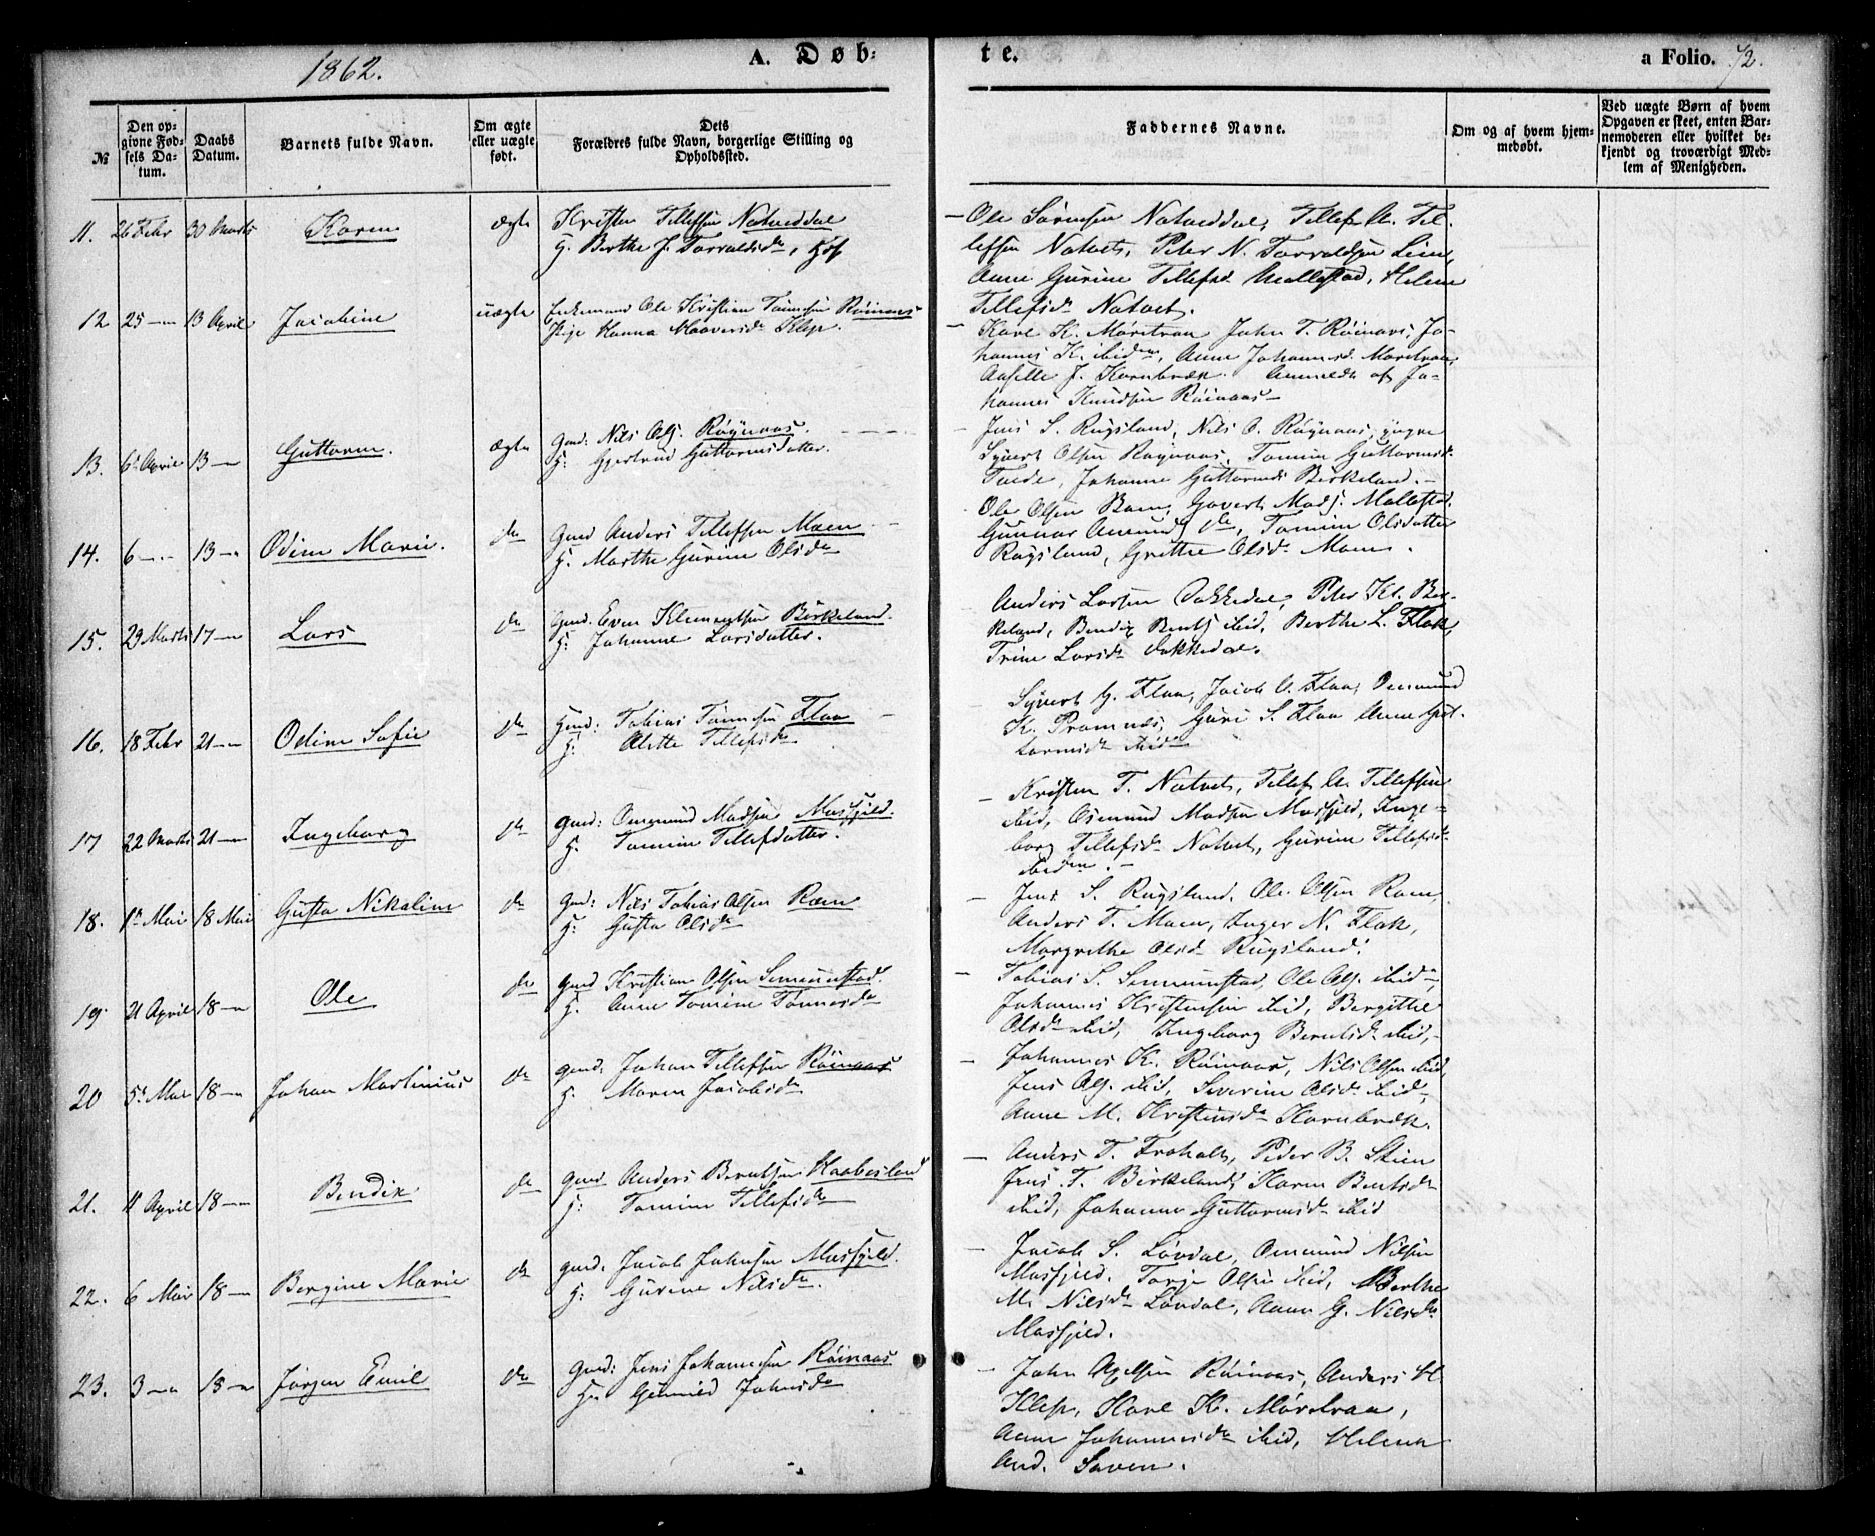 1862.
A. Døb-
te.
a Folio. 72.
№
Den op-
givne Fød-
sels Da-
tum.
Daabs
Datum.
Barnets fulde Navn.
Om ægte
eller uægte
født.
Dets
Forældres fulde Navn, borgerlige Stilling og
Opholdssted.
Faddernes Navne.
Om og af hvem hjem-
medøbt.
Ved uægte Børn af hvem
Opgaven er skeet, enten Bar-
nemoderen eller hvilket be-
kjendt og troværdigt Med-
lem af Menigheden.
11. 26 Febr 30 Marts Karen ægte Kristen Tellefsen Natveddal
H. Berthe J. Torvaldsd
Ole Sørensen Natveddal, Tellef A. Tel-
lefsen Natvet, Peter N. Torvaldsen Lien,
Anne Gurine Tellefsd Mollestad, Helene
Tellefsd Natvet.
12 25 — 13 April Jacobine uægte Enkemand Ole Kristian Tønnesen Røinaas
Pige Hanna Haaversd Klep.
Karl K. Møretraa John T. Røinaas, Jo-
hannes K. ibid, Anne Johannesd. Møretraa,
Aaselle J. Kornbræk. Anmeldt af Jo-
hannes Knudsen Røinaas
13. 6 April 13 — Guttorm. ægte Gmd: Nils Olsj. Røynaas.
H: Gjertrud Guttormsdatter.
Jens S. Rugsland, Nils O. Røynaas, yngre
Syvert Olsen Røynaas, Tomine Guttormsd
Tvede, Johanne Guttormsd Birkeland.
14. 6 — 13 — Odine Marie. do Gmd Anders Tellefsen Moen
H. Marthe Gurine Olsd
Ole Olsen Ram, Govert Madsj. Mollestad,
Gunnar Aanundsj do, Tomine Olsdatter
Rugsland, Grethe Olsd Moen.
15. 29 Marts 17 — Lars do Gmd: Even Klementsen Birkeland.
H: Johanne Larsdatter.
Anders Larsen Vakkedal, Peter Kl. Bir-
keland, Bendix Bentsj ibid, Berthe L. Flak,
Trine Larsd Vakkedal.
16. 18 Febr 21 — Odine Sofie do Hmd: Tobias Tønnesen Flaa
H: Alette Tellefsd
Syvert G. Flaa, Jacob O. Flaa, Ommund
K. Pramnes, Guri S. Flaa Anne Gut-
tormsd ibid
17 22 Marts 21 — Ingeborg do Gmd: Ommund Madsen Mosfjeld.
H. Tomine Tellefdatter.
Kristen T. Natvet, Tellef A. Tellefsen
ibid, Osmund Madsen Mosfjeld, Inge-
borg Tellefsd Natvet, Gurine Tellefsd
ibidem.
18. 1 Mai 18 Mai Gusta Nikaline do Gmd: Nils Tobias Olsen Ram
H: Gusta Olsd
Jens S. Rugsland, Ole Olsen Ram,
Anders T. Moen, Inger N. Flak,
Margrethe Olsd Rugsland.
19. 21 April 18 — Ole do Gmd Kristian Olsen Senumstad.
H. Anne Tomine Tønnesd
Tobias S. Senumstad, Ole Olsj. ibid,
Johannes Kristensen ibid, Bergithe
Olsd ibid, Ingeborg Berntsd ibid,
20 5 Mai 18 — Johan Martinius do Gmd. Johan Tellefsen Røinaas
H. Maren Jacobsd
Johannes K. Røinaas, Nils Olsen ibid,
Jens Olsj. ibid, Severine Olsd ibid,
Anne M. Kristensd Kornbræk.
21. 11 April 18 — Bendix do Gmd Anders Berntsen Haabesland
H: Tomine Tellefsd
Anders T. Froholt, Peder B. Stien
Jens T. Birkeland, Karen Bentsd
ibid, Johanne Guttormsd ibid
22. 6 Mai 18 — Bergine Marie do Gmd. Jacob Johnsen Mosfjeld.
H: Gurine Nilsd.
Jacob S. Løvdal, Ommund Nilsen
Mosfjeld, Torje Olsen ibid, Berthe
M. Nilsd Løvdal, Anne G. Nilsd
Mosfjeld.
23. 3 — 18 — Jørgen Emil do Gmd: Jens Johannesen Røinaas
H: Gunnild Johnsd
John Axelsen Røinaas, Anders H.
Klep, Karl K. Møretraa,
Anne Johannesd ibid, Helene
And. Saven.